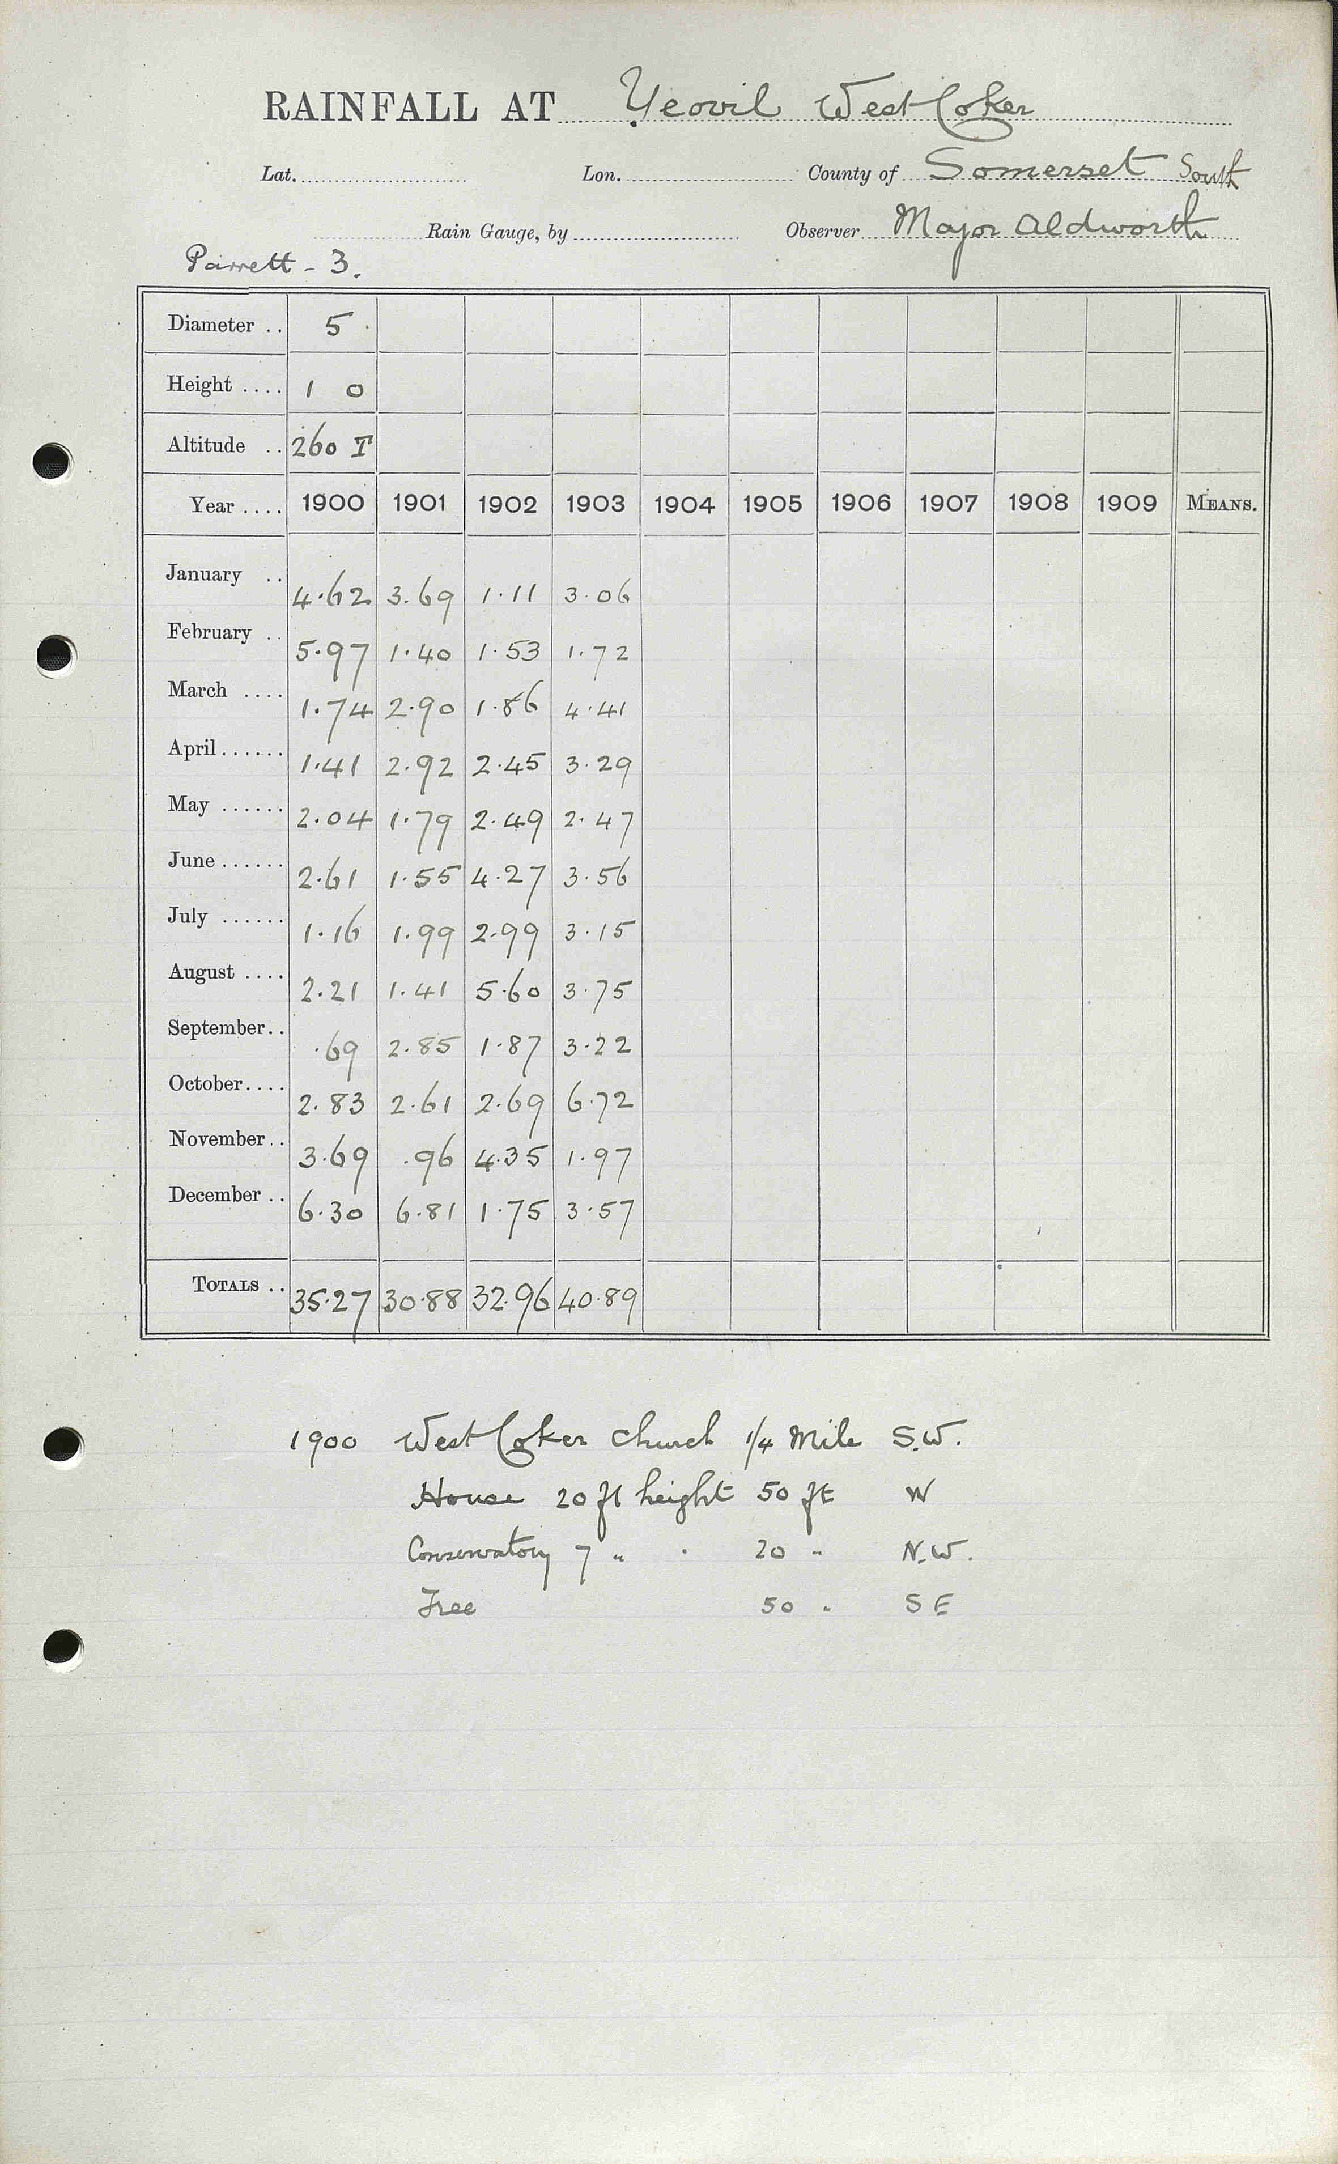 RAINFALL AT Yeovil West Coker
Lat. Lon. County of Somerset South
Rain Gauge, by Observer Major Aldworth
Parrett - 3.
Diameter .. 5
Height .... 1 0
Altitude .. 260 T
Year .... 1900 1901 1902 1903 1904 1905 1906 1907 1908 1909 MEANS.
January .. 4.62 3.69 1.11 3.06
February .. 5.97 1.40 1.53 1.72
March .... 1.74 2.90 1.86 4.41
April ...... 1.41 2.92 2.45 3.29
May ...... 2.04 1.79 2.49 2.47
June ...... 2.61 1.55 4.27 3.56
July ...... 1.16 1.99 2.99 3.15
August .... 2.21 1.41 5.60 3.75
September .. .69 2.85 1.87 3.22
October .... 2.83 2.61 2.69 6.72
November .. 3.69 .96 4.35 1.97
December .. 6.30 6.81 1.75 3.57
TOTALS .. 35.27 30.88 32.96 40.89
1900 West Coker Church 1/4 Mile S.W.
House 20 ft height 50 ft W
Conservatory 7 " " 20 " N.W.
Tree 50 " S E